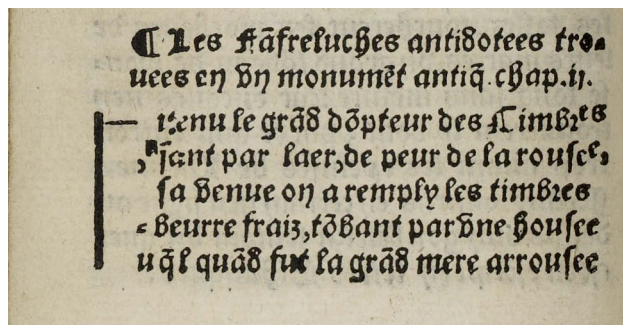 ¶ Les Fãfreluches antidotees tro⸗
uees en vn monumẽt antiq̃. chap.ij.
uenu le grãd dõpteur des Cimbres
sant par laer, de peur de la rousee,
sa venue on a remply les timbres
beurre fraiz, tõbant par vne housee
uq̃l quãd fut la grãd mere arrousee